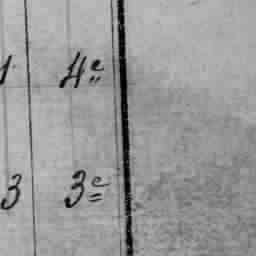 1 4e
3 3e